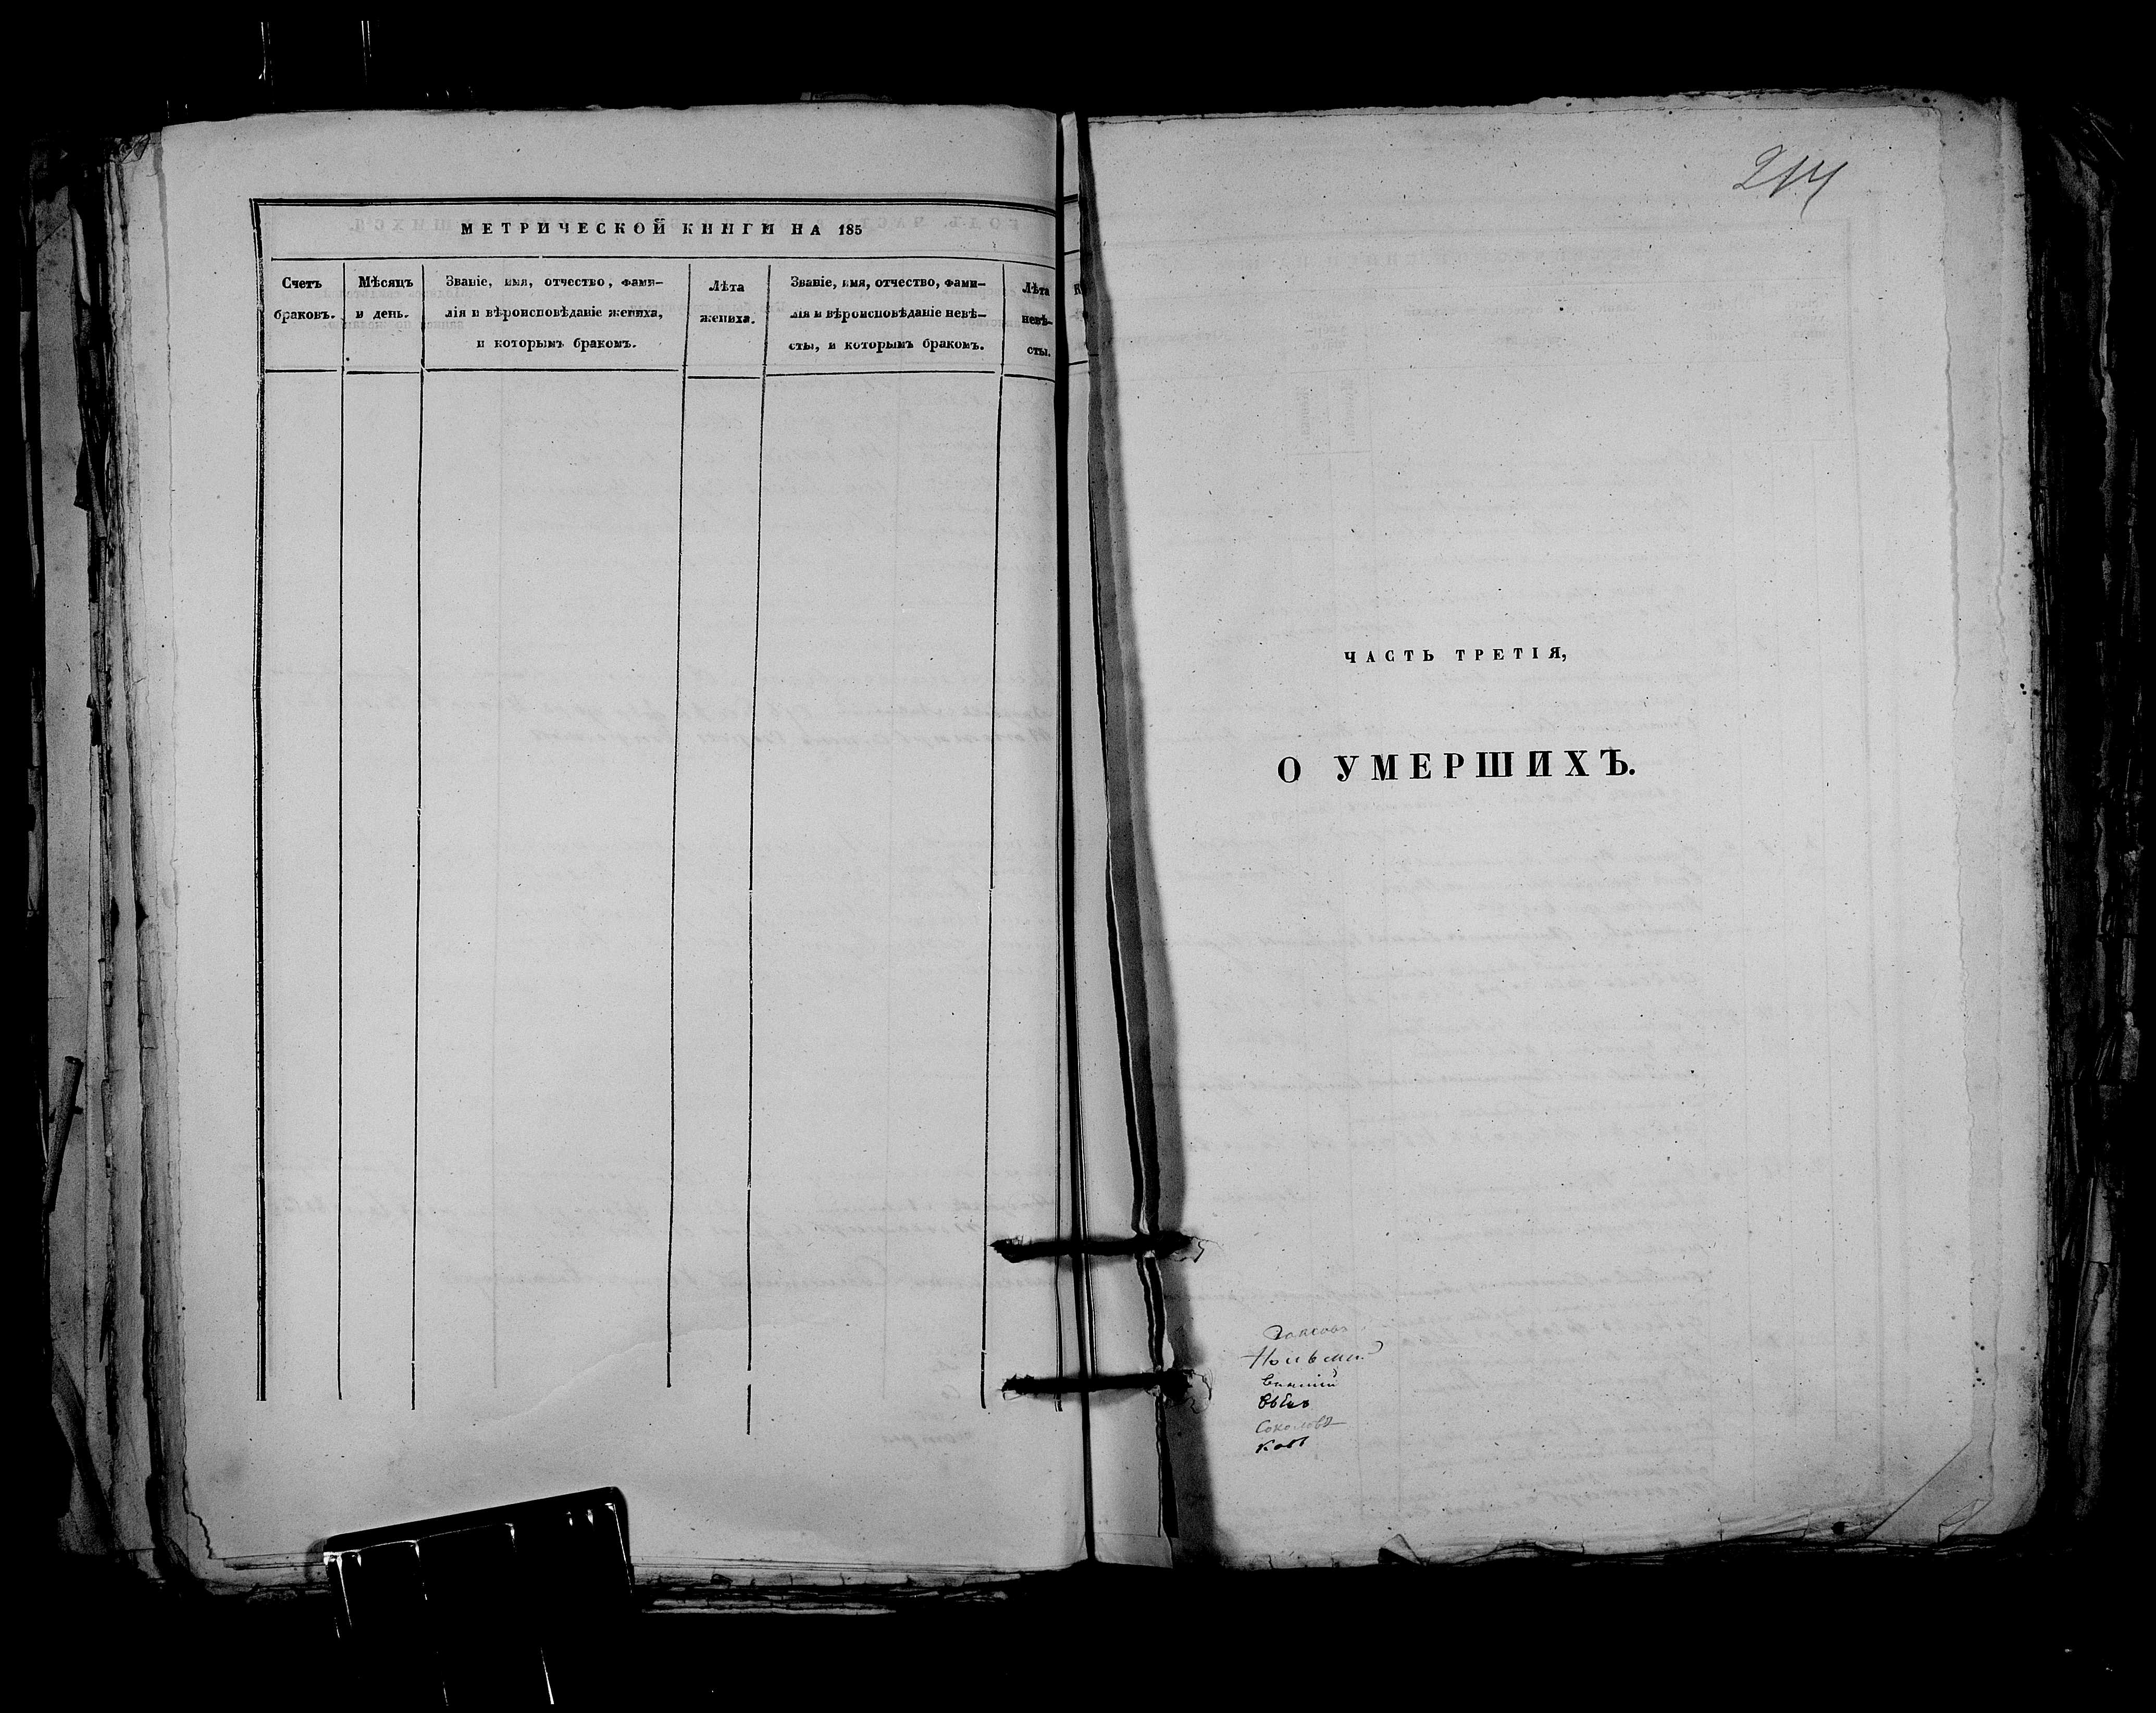 МЕТРИЧЕСКОЙ КНИГИ НА 185
Счетъ браковъ.
Мѣсяцъ и день.
Званіе, имя, отчество, фами-
лія и вѣроисповѣданіе жениха,
и которымъ бракомъ.
Лѣта
жениха.
Званіе, имя, отчество, фами-
лія и вѣроисповѣданіе невѣ-
сты, и которымъ бракомъ.
Лѣта
невѣ-
сты.
214
ЧАСТЬ ТРЕТІЯ,
О УМЕРШИХЪ.
Соколовъ